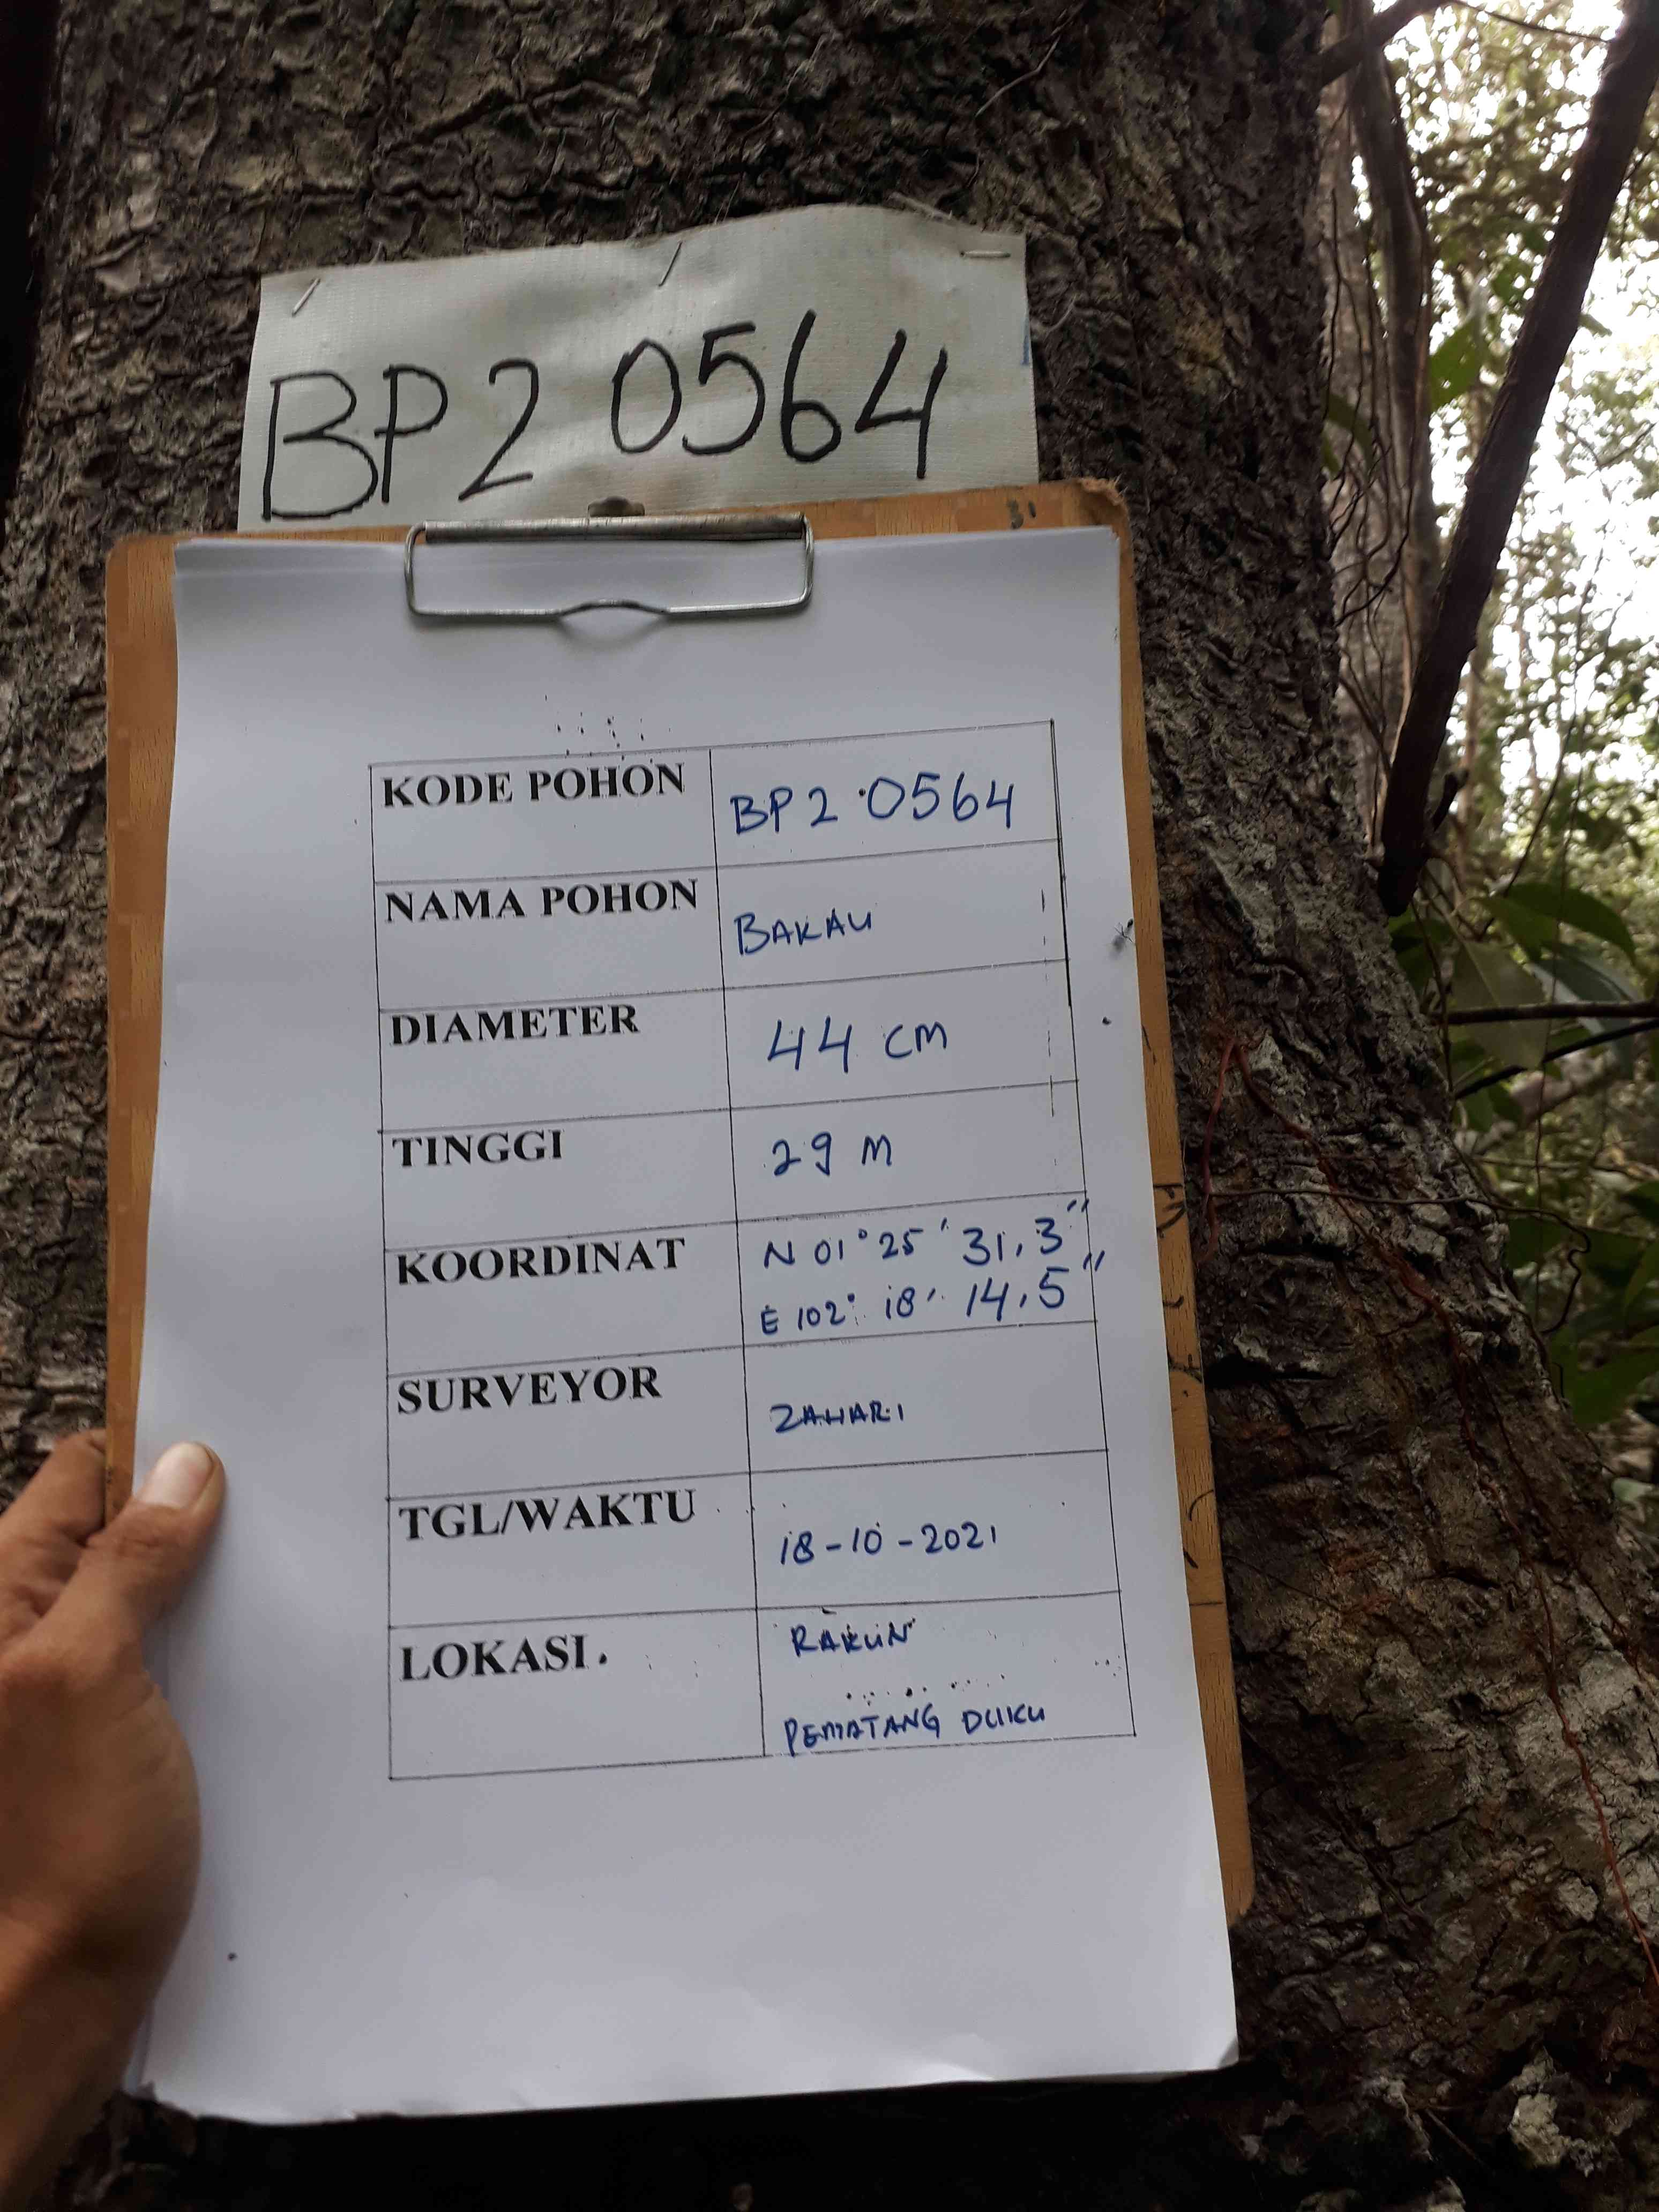 BP2 0564
KODE POHON BP2 0564
NAMA POHON BAKAU
DIAMETER 44 CM
TINGGI 29 M
KOORDINAT N 01° 25' 31,3"
E 102° 18' 14,5"
SURVEYOR ZAHARI
TGL/WAKTU 18-10-2021
LOKASI. RAKUN
PEMATANG DUKU